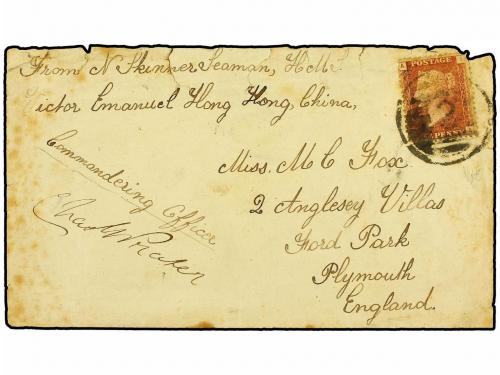 From N Skinner Seaman, H.M.S.
Victor Emanuel Hong Hong, China,
POSTAGE
PENNY
Miss. M C Fox
2 Anglesey Villas
Ford Park
Plymouth
England.
Commandering Officer